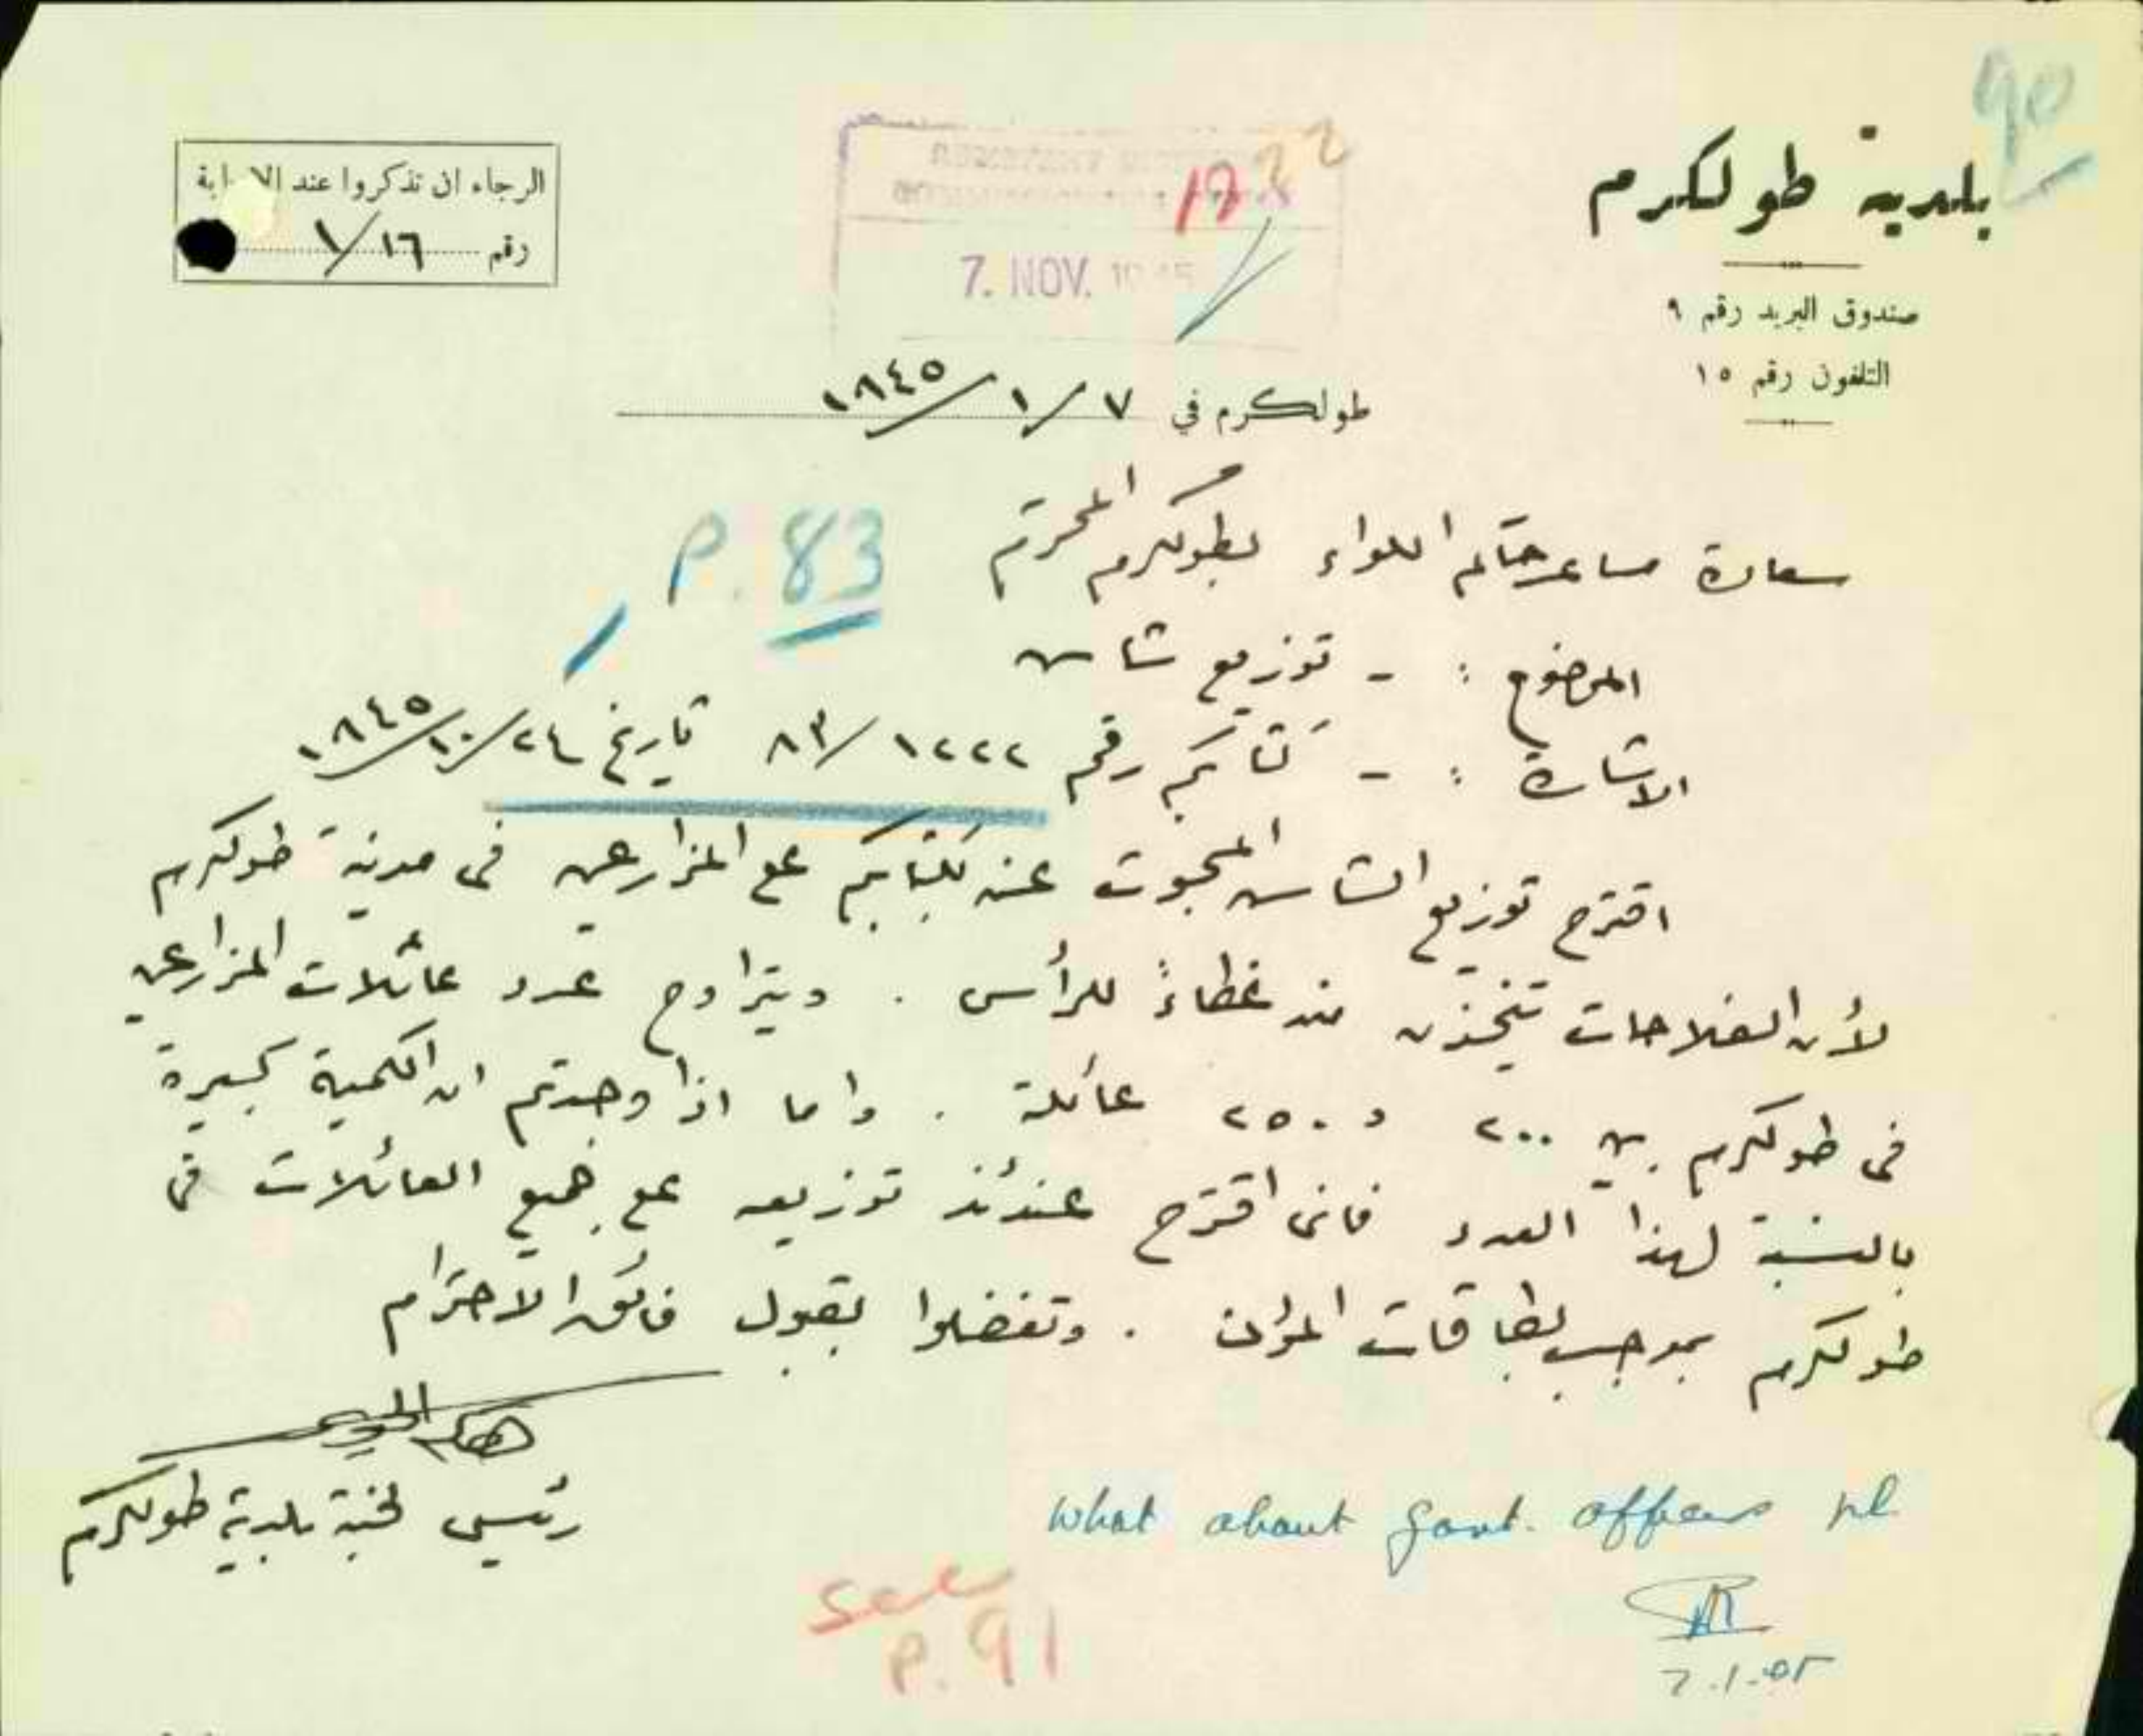 90
بلدية طولكرم
صندوق البريد رقم ٩
التلفون رقم ١٥
7. NOV. 1945
الرجاء ان تذكروا عند الاجابة
رقم ١/١٦
طولكرم في ٧/١/١٩٤٥
سعادة مساعد حاكم اللواء بطولكرم المحترم
P. 83
الموضوع : - توزيع شاش
الاشارة : - كتابكم رقم ٨٣/١٢٢٢ تاريخ ٢٤/١٠/١٩٤٥
اقترح توزيع الشاش المبحوث عنه بكتابكم على المزارعين في مدينة طولكرم
لأن الفلاحات تتخذن منه غطاءً للرأس . ويتراوح عدد عائلات المزارعين
في طولكرم بين ٢٠٠ و ٢٥٠ عائلة . واما اذا وجدتم ان الكمية كبيرة
بالنسبة لهذا العدد فاني اقترح عندئذ توزيعه على جميع العائلات في
طولكرم بموجب بطاقات المؤن . وتفضلوا بقبول فائق الاحترام
رئيس لجنة بلدية طولكرم
what about govt. officers pl
see
P. 91